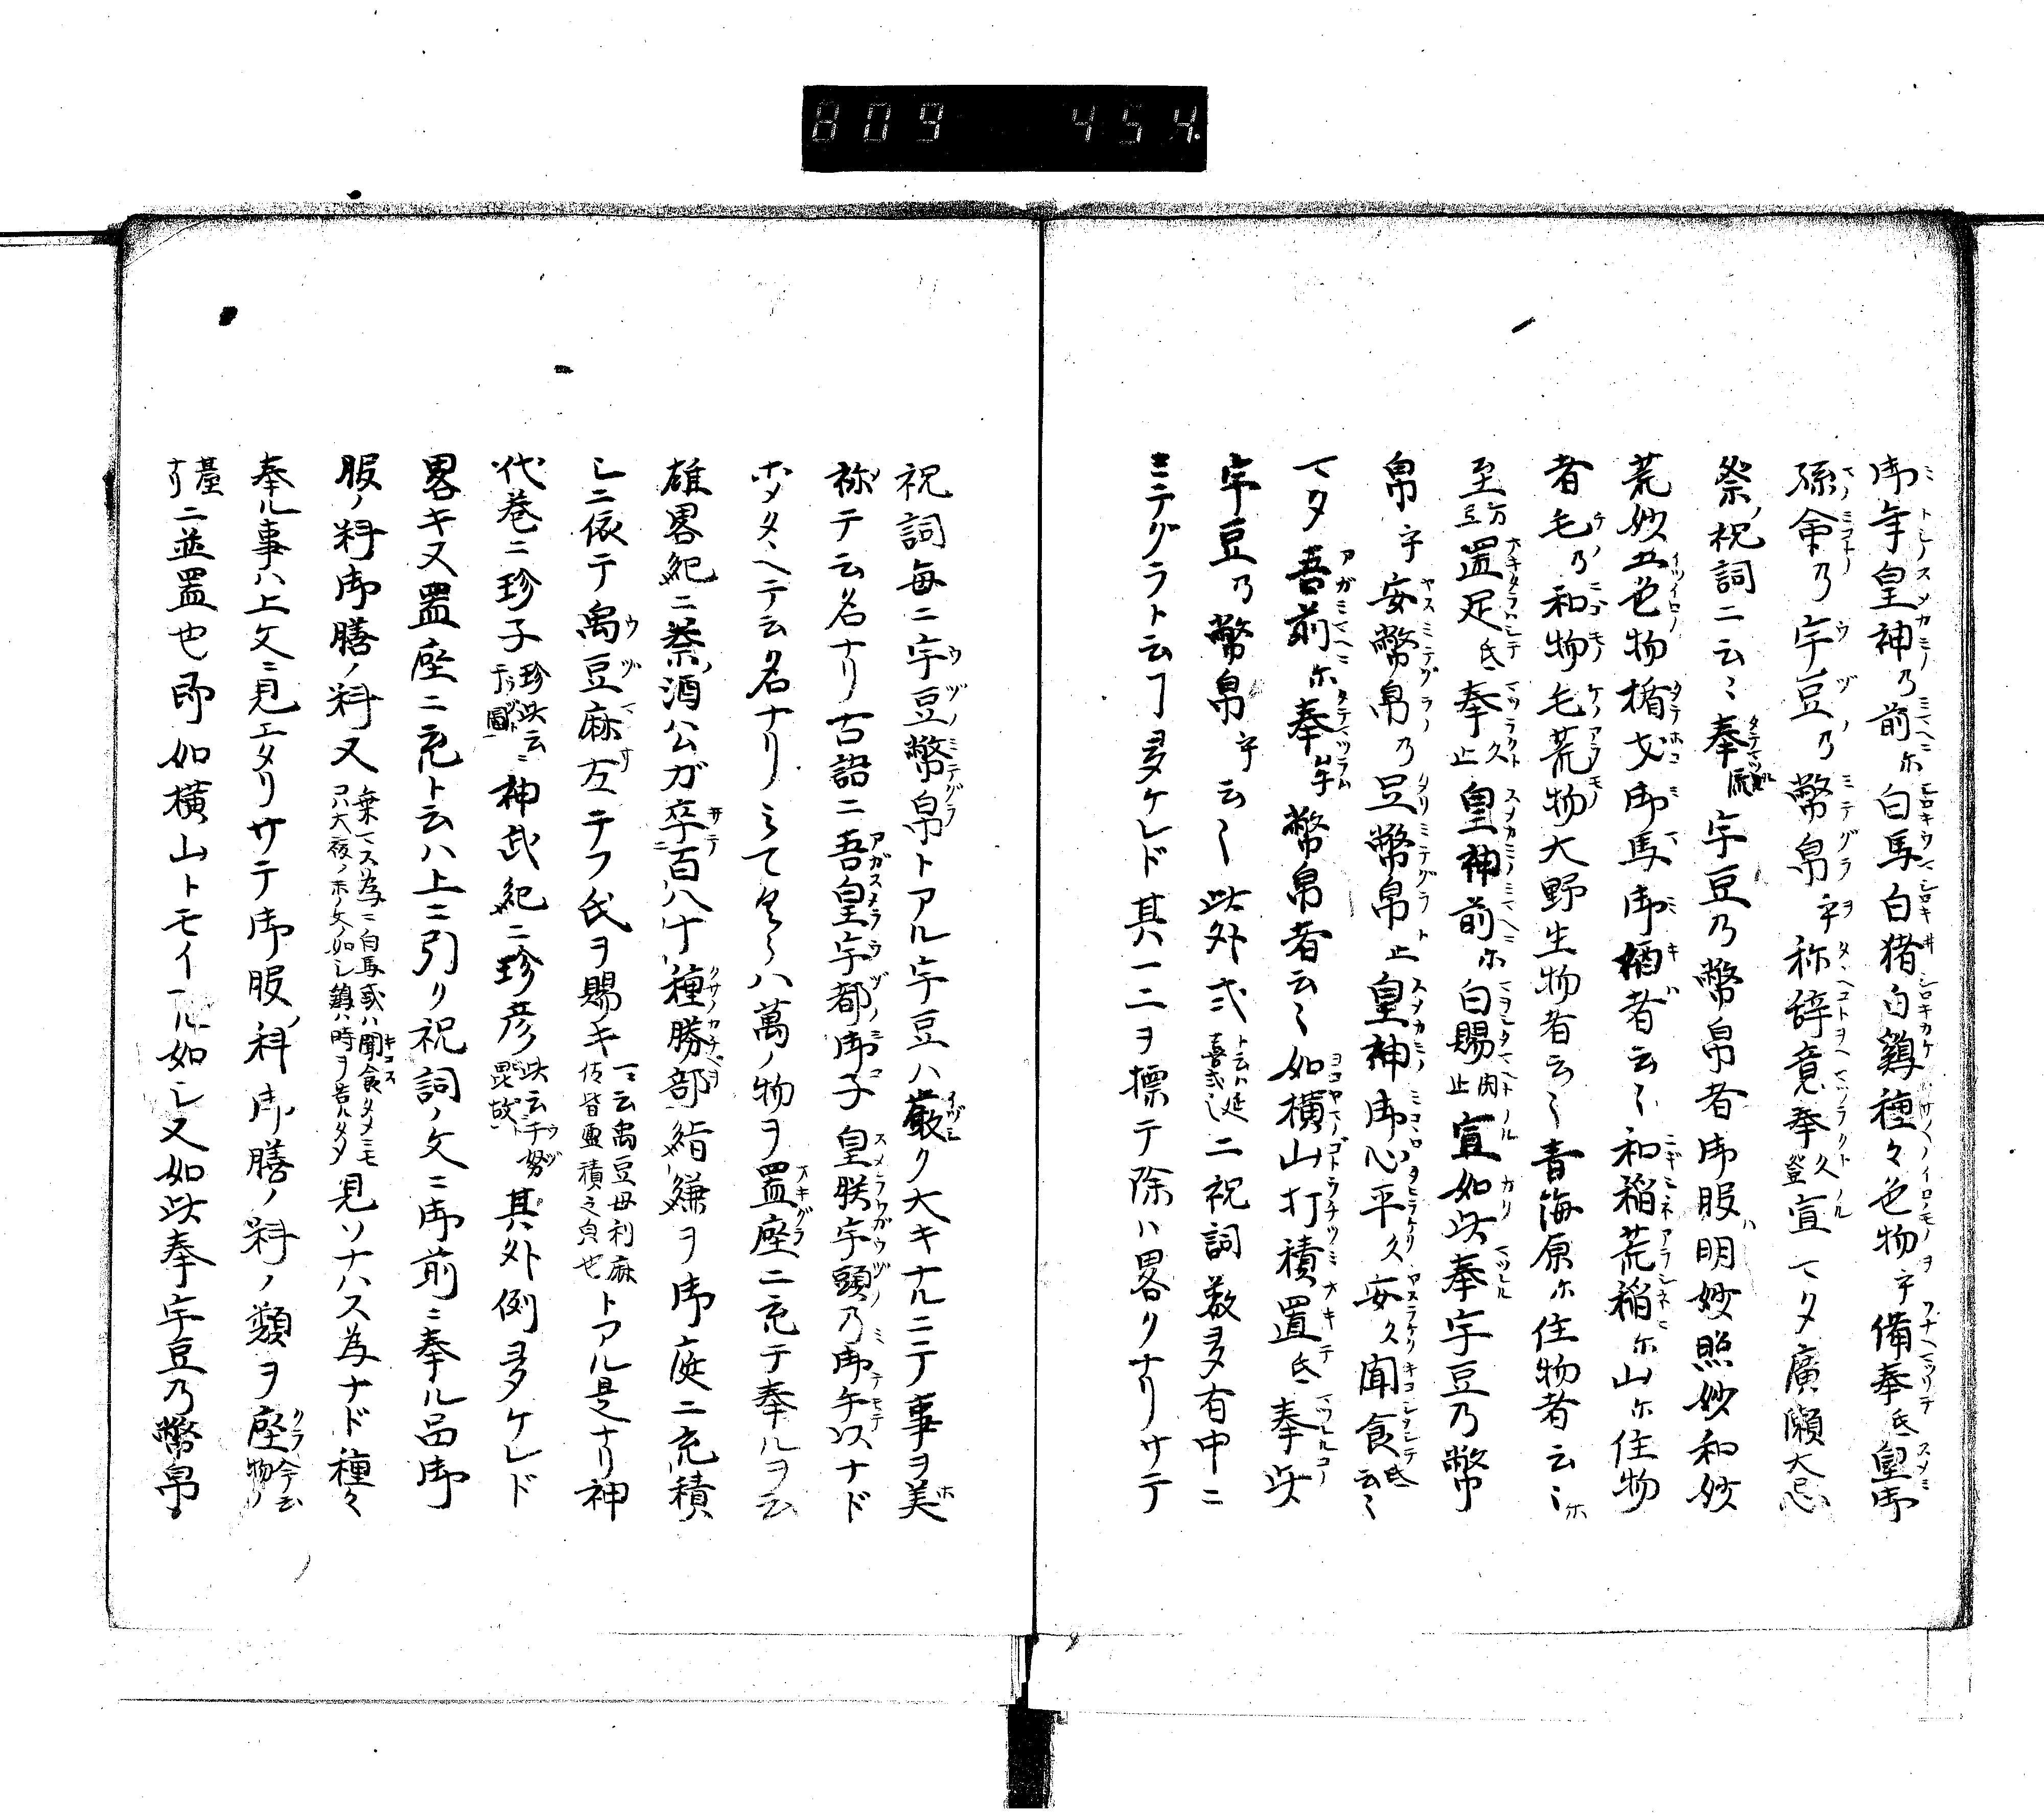 809 454
御年皇神乃前尓白馬白猪白鷄種々色物乎備奉氐皇御
孫命乃宇豆乃幣帛乎称辞竟奉久登宣マタ廣瀬大忌
祭祝詞ニ云ミ奉宇豆乃幣帛者御服明妙照妙和妙
荒妙五色物楯戈御馬御酒者云〻和稲荒稲尓山尓住物
者毛乃和物毛荒物大野生物者云〻青海原尓住物者云〻
至万豆置足氐奉久止皇神前尓白賜閇止宣如此奉宇豆乃幣
帛乎安幣帛乃足幣帛止皇神御心平久安久聞食氐云〻
マタ吾前尓奉牟幣帛者云〻如横山打積置氐奉此
宇豆乃幣帛乎云〻此外式ト云ハ延喜式也ニ祝詞数多有中ニ
ミテグラト云ヿ多ケレド其一二ヲ標テ除ハ畧クナリサテ
祝詞毎ニ宇豆幣帛トアル宇豆ハ厳ク大キナルニテ事ヲ美
称テ云名ナリ古語ニ吾皇宇都御子皇朕宇頭乃御手以ナド
ホメタヘテ云名ナリミてくらハ萬ノ物ヲ置座ニ充テ奉ルヲ云
雄畧紀ニ秦酒公ガ卒百八十種勝部絹縑ヲ御庭ニ充積
シニ依テ禹豆麻左テフ氏ヲ賜キ一ニ云禹豆母利麻佐皆盈積之皃也トアル是ナリ神
代巻ニ珍子珍此云于圖神武紀ニ珍彦此云于努毘故其外例多ケレド
畧キ又置座ニ充ト云ハ上ニ引ク祝詞ノ文ニ御前ニ奉ル品御
服ノ料御膳ノ料又乗マス為ニ白馬或ハ聞食タメニモ鶏ハ時ヲ告ルタメ見ソナハス為ナド種々
奉ル事ハ上文ニ見エタリサテ御服ノ料御膳ノ料ノ類ヲ座クラハ今云物ノ
臺ナリニ並置也即如横山トモイヘル如シ又如此奉宇豆乃幣帛